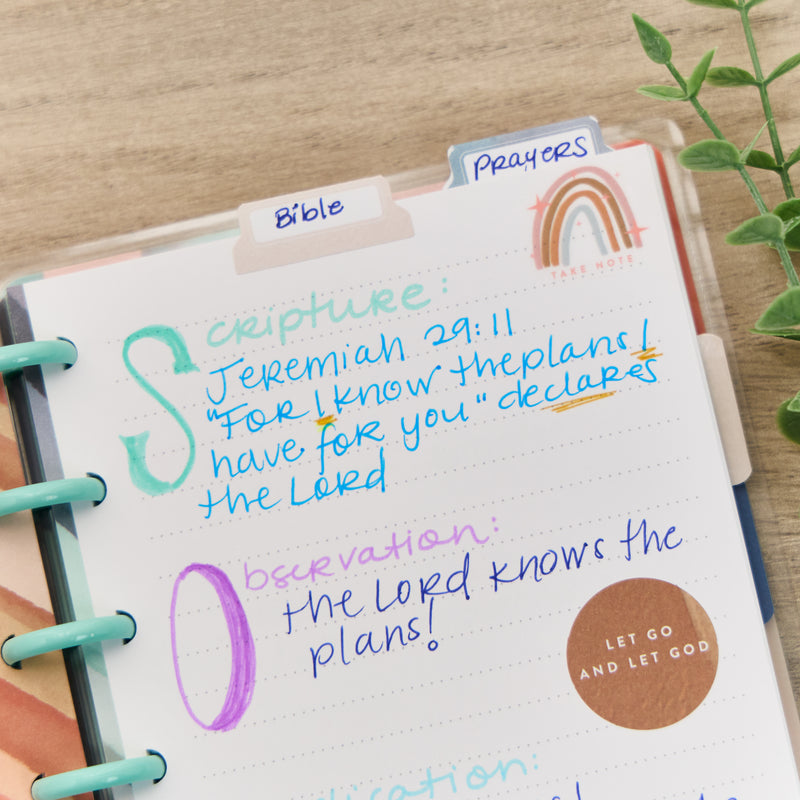 Prayers
Bible
TAKE NOTE
Scripture:
Jeremiah 29:11
"For I know the plans I
have for you" declares
the Lord
Observation:
the Lord knows the
plans!
LET GO
AND LET GOD